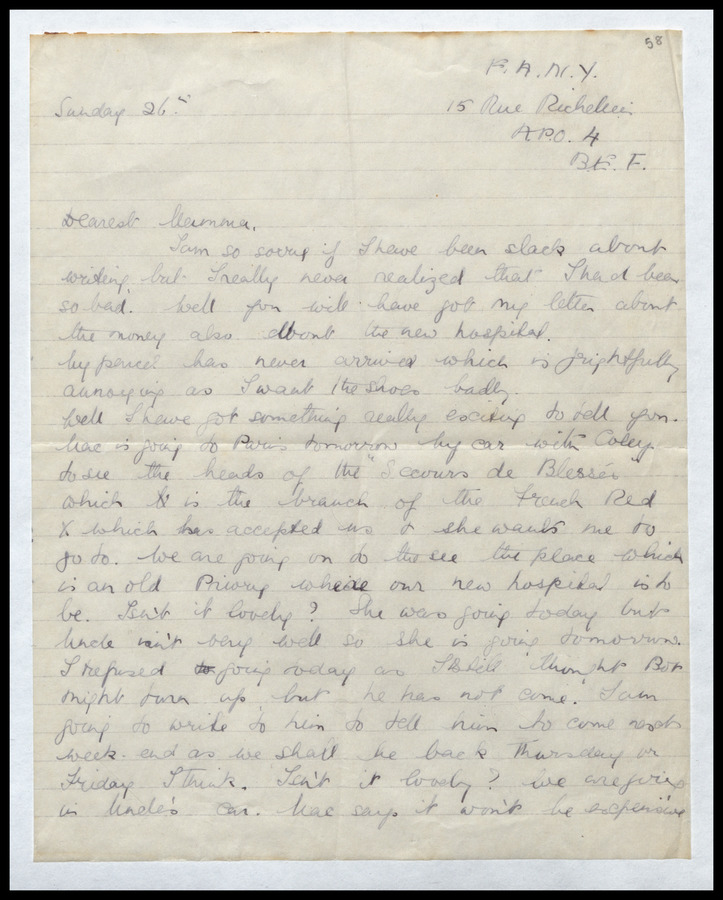 58
F.A.N.Y.
Sunday 26th 15 Rue Richelieu
A.P.O. 4
B.E.F.
Dearest Mamma,
I am so sorry if I have been slack about
writing but I really never realized that I had been
so bad. Well you will have got my letter about
the money also about the new hospital.
My parcel has never arrived which is frightfully
annoying as I want the shoes badly.
Well I have got something really exciting to tell you.
Mac is going to Paris tomorrow by car with Coley
to see the heads of the "Secours de Blessés"
which is the branch of the French Red
X which has accepted us & she wants me to
go to. We are going on to see the place which
is an old Priory where our new hospital is to
be. Isn't it lovely? She was going today but
Uncle isn't very well so she is going tomorrow.
I refused going today as I still thought Bot
might turn up, but he has not come. I am
going to write to him to tell him to come next
week-end as we shall be back Thursday or
Friday I think. Isn't it lovely? We are going
in Uncle's car. Mac says it won't be expensive